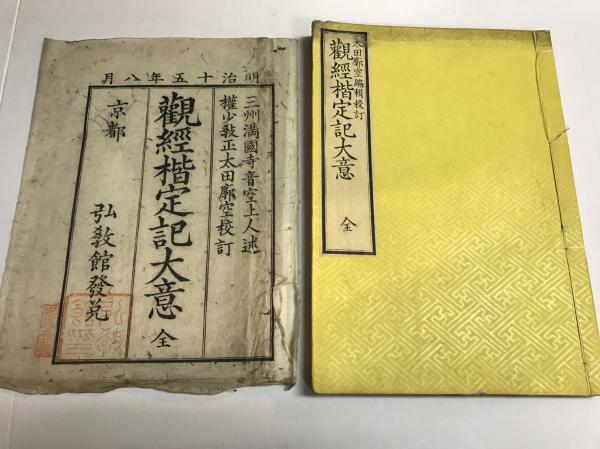 明治十五年八月
三州満國寺音空上人述
權少敎正太田廓空校訂
觀經楷定記大意 全
京都 弘敎館發兌
太田廓空編輯校訂
觀經楷定記大意 全